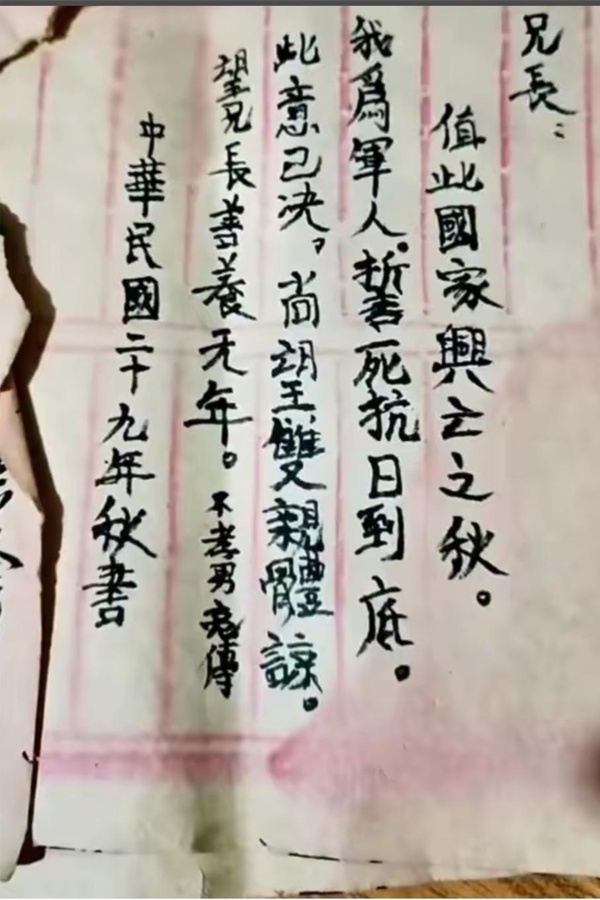 兄長：
值此國家興亡之秋。
我爲軍人。誓死抗日到底。
此意已决，尚望雙親體諒。
望兄長善養天年。不孝男 傳
中華民國二十九年秋書